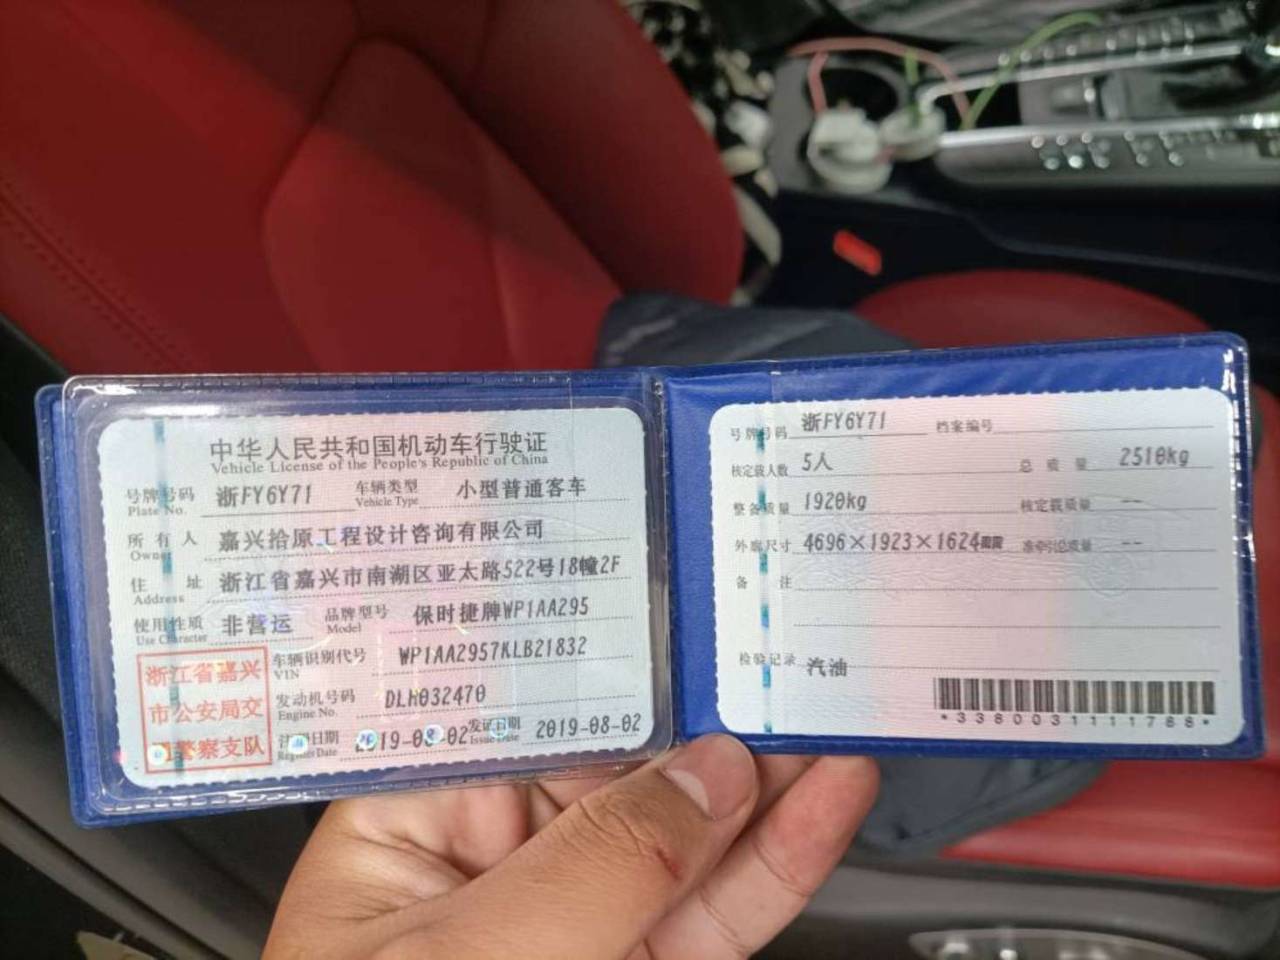 中华人民共和国机动车行驶证
Vehicle License of the People's Republic of China
号牌号码 浙FY6Y71 车辆类型 小型普通客车
Plate No. Vehicle Type
所有人 嘉兴拾原工程设计咨询有限公司
Owner
住址 浙江省嘉兴市南湖区亚太路522号18幢2F
Address
使用性质 非营运 品牌型号 保时捷牌WP1AA295
Use Character Model
浙江省嘉兴
市公安局交
警察支队
车辆识别代号 WP1AA2957KLB21832
VIN
发动机号码 DLH032470
Engine No.
注册日期 2019-08-02 发证日期 2019-08-02
Register Date Issue Date
号牌号码 浙FY6Y71 档案编号
核定载人数 5人 总质量 2510kg
整备质量 1920kg 核定载质量 --
外廓尺寸 4696×1923×1624mm 准牵引总质量 --
备注
检验记录 汽油
*3380031111768*